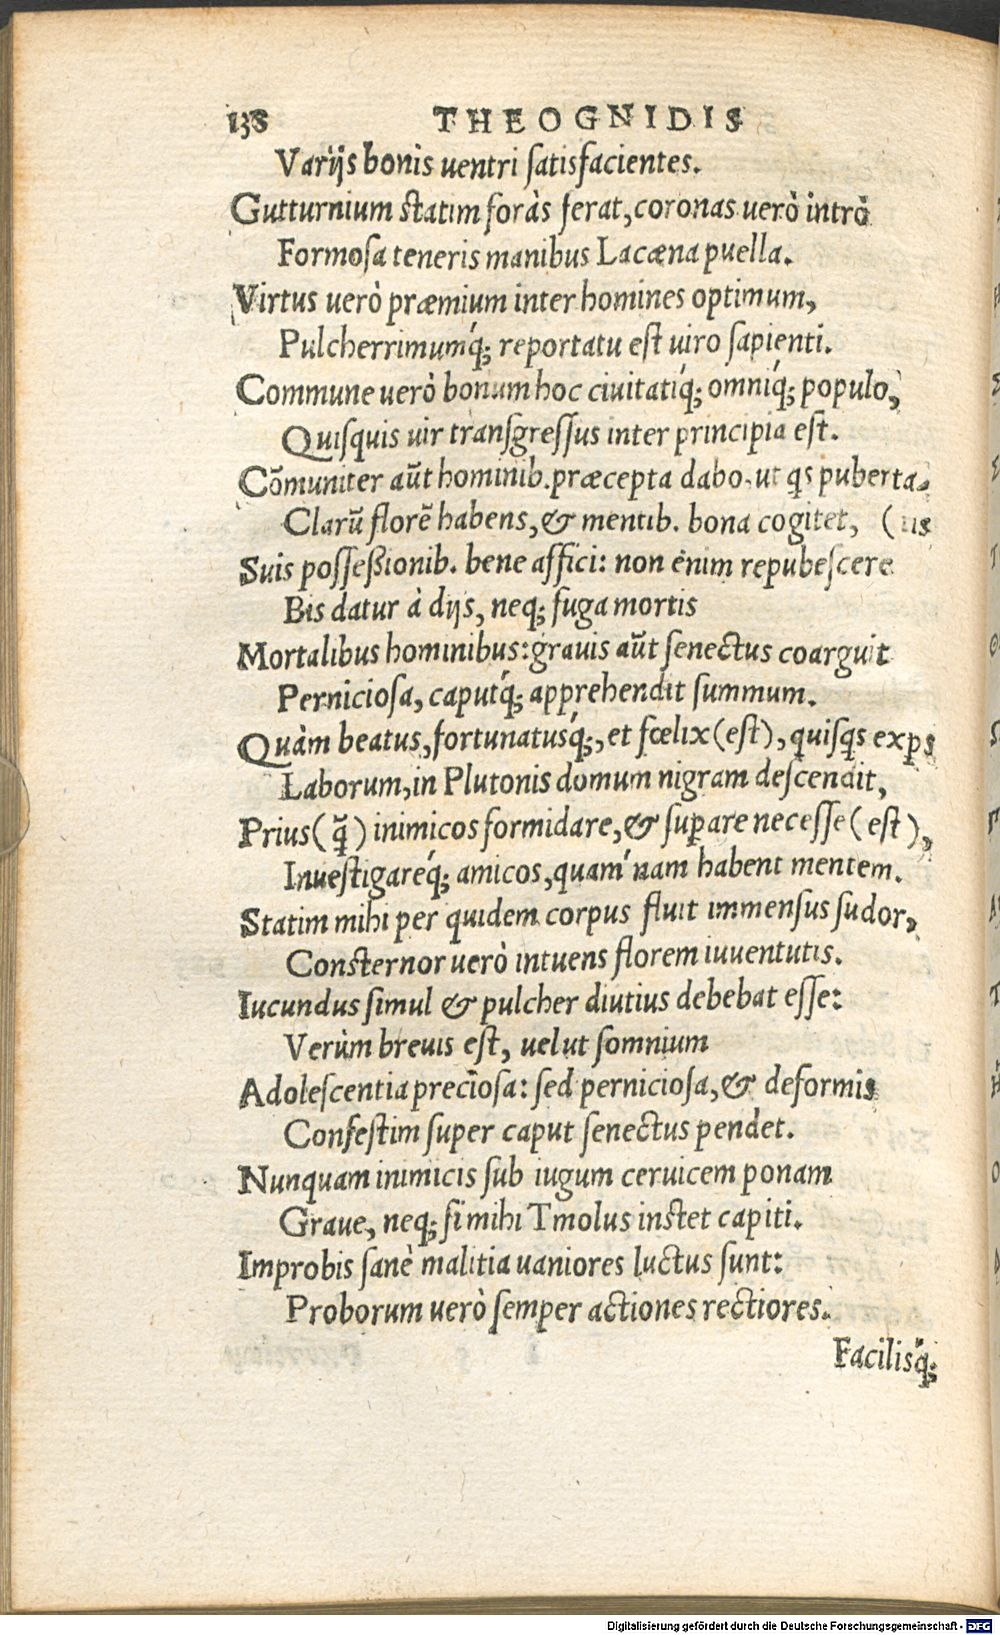 138 THEOGNIDIS
Varijs bonis uentri ſatisfacientes.
Gutturnium ſtatim foràs ferat, coronas uerò intrò
Formoſa teneris manibus Lacæna puella.
Virtus uerò præmium inter homines optimum,
Pulcherrimumq́; reportatu eſt uiro ſapienti.
Commune uerò bonum hoc ciuitatiq́; omniq́; populo,
Quiſquis uir tranſgreſſus inter principia eſt.
Cõmuniter aũt hominib. præcepta dabo, ut qs puberta-
Clarũ florẽ habens, & mentib. bona cogitet, (tis
Suis poſſeßionib. bene affici: non enim repubeſcere
Bis datur à dijs, neq; fuga mortis
Mortalibus hominibus: grauis aũt ſenectus coarguit
Pernicioſa, caputq́; apprehendit ſummum.
Quàm beatus, fortunatusq́;, et fœlix (eſt), quiſqs exꝑs
Laborum, in Plutonis domum nigram deſcendit,
Prius (q̃) inimicos formidare, & ſuꝑare neceſſe (eſt),
Inueſtigareq́; amicos, quam nam habent mentem.
Statim mihi per quidem corpus fluit immenſus ſudor,
Conſternor uerò intuens florem iuuentutis.
Iucundus ſimul & pulcher diutius debebat eſſe:
Verùm breuis eſt, uelut ſomnium
Adoleſcentia precioſa: ſed pernicioſa, & deformis
Confeſtim ſuper caput ſenectus pendet.
Nunquam inimicis ſub iugum ceruicem ponam
Graue, neq; ſi mihi Tmolus inſtet capiti.
Improbis ſanè malitia uaniores luctus ſunt:
Proborum uerò ſemper actiones rectiores.
Facilisq́;
Digitalisierung gefördert durch die Deutsche Forschungsgemeinschaft - DFG